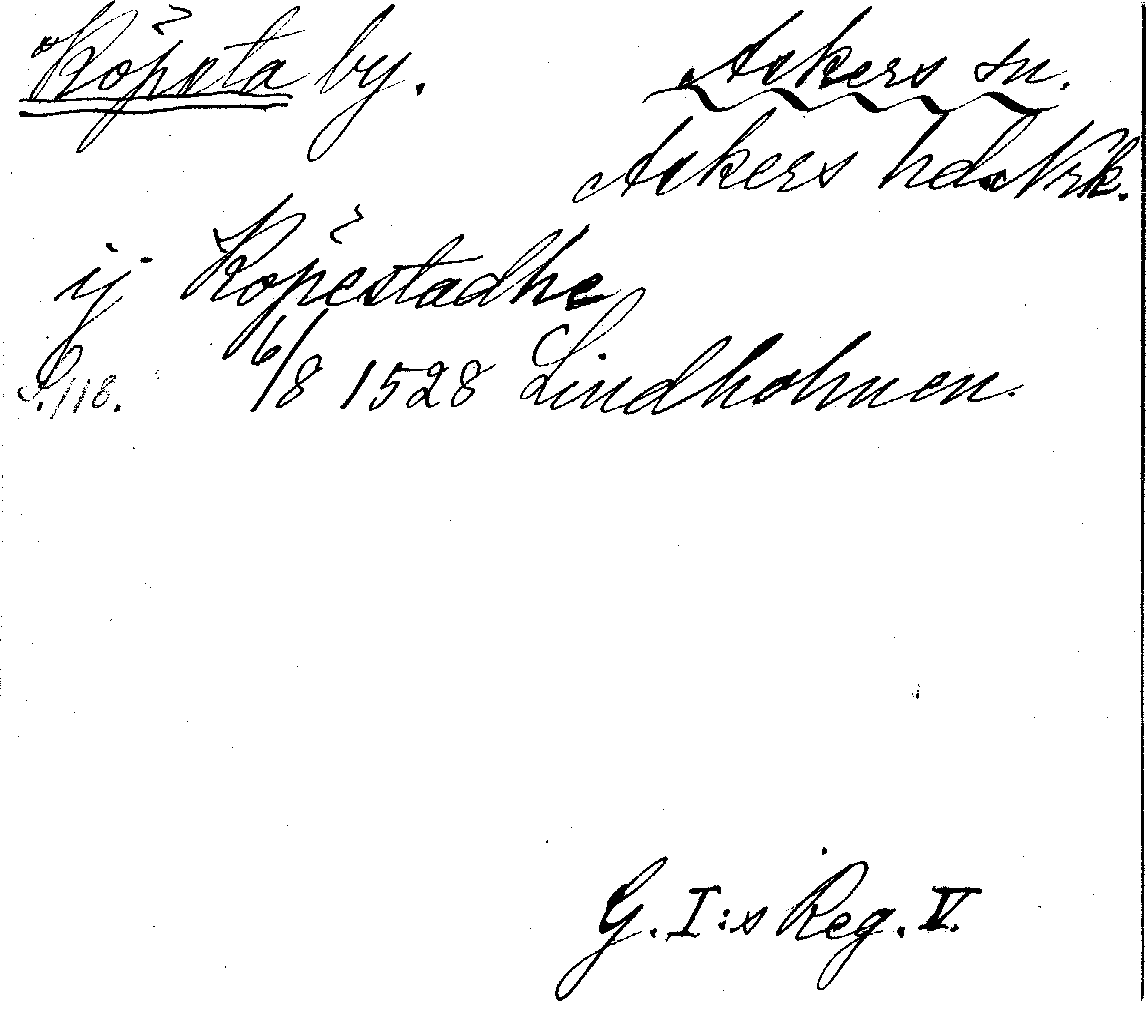 Köpsta by. Askers sn.
Askers hd. Nrk.
ij Köpestadhe
S. 118. 6/8 1528 Lindholmen.
G. I:s Reg. V.